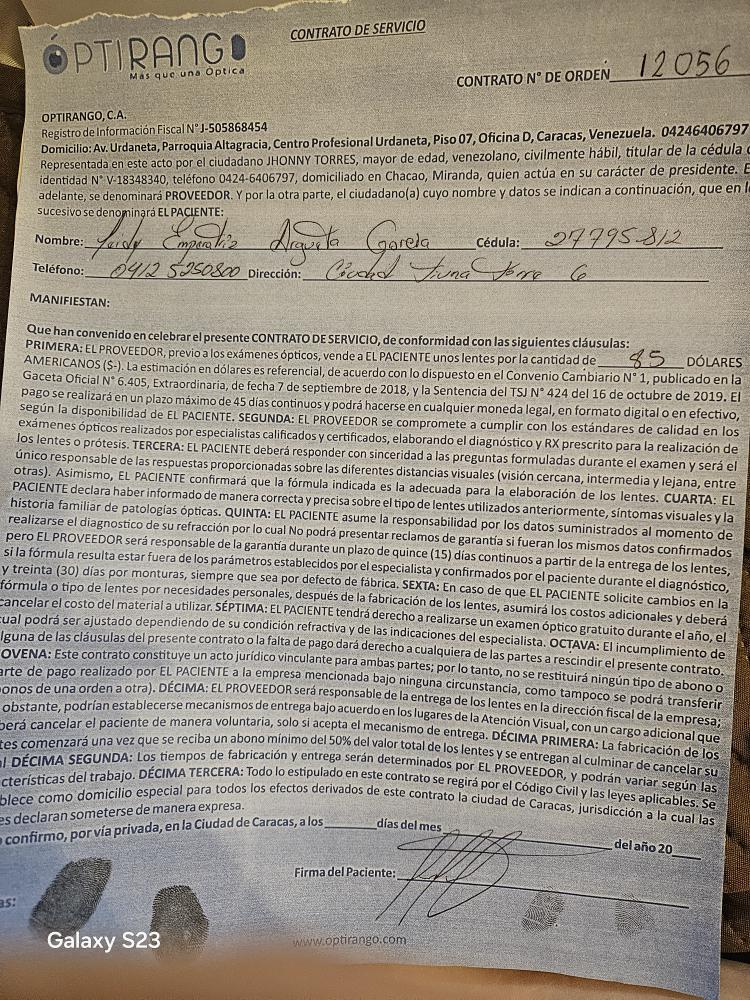 ÓPTIRANGO
Más que una Óptica
CONTRATO DE SERVICIO
CONTRATO N° DE ORDEN 12056
OPTIRANGO, C.A.
Registro de Información Fiscal N° J-505868454
Domicilio: Av. Urdaneta, Parroquia Altagracia, Centro Profesional Urdaneta, Piso 07, Oficina D, Caracas, Venezuela. 04246406797
Representada en este acto por el ciudadano JHONNY TORRES, mayor de edad, venezolano, civilmente hábil, titular de la cédula
identidad N° V-18348340, teléfono 0424-6406797, domiciliado en Chacao, Miranda, quien actúa en su carácter de presidente.
adelante, se denominará PROVEEDOR. Y por la otra parte, el ciudadano(a) cuyo nombre y datos se indican a continuación, que en
sucesivo se denominará EL PACIENTE:
Nombre: Emperatriz Argueta Garcia Cédula: 27795812
Teléfono: 0412 5250800 Dirección: Ciudad Tiuna Torre 6
MANIFIESTAN:
Que han convenido en celebrar el presente CONTRATO DE SERVICIO, de conformidad con las siguientes cláusulas:
PRIMERA: EL PROVEEDOR, previo a los exámenes ópticos, vende a EL PACIENTE unos lentes por la cantidad de 85 DÓLARES
AMERICANOS ($-). La estimación en dólares es referencial, de acuerdo con lo dispuesto en el Convenio Cambiario N° 1, publicado en la
Gaceta Oficial N° 6.405, Extraordinaria, de fecha 7 de septiembre de 2018, y la Sentencia del TSJ N° 424 del 16 de octubre de 2019. El
pago se realizará en un plazo máximo de 45 días continuos y podrá hacerse en cualquier moneda legal, en formato digital o en efectivo,
según la disponibilidad de EL PACIENTE. SEGUNDA: EL PROVEEDOR se compromete a cumplir con los estándares de calidad en los
exámenes ópticos realizados por especialistas calificados y certificados, elaborando el diagnóstico y RX prescrito para la realización de
los lentes o prótesis. TERCERA: EL PACIENTE deberá responder con sinceridad a las preguntas formuladas durante el examen y será el
único responsable de las respuestas proporcionadas sobre las diferentes distancias visuales (visión cercana, intermedia y lejana, entre
otras). Asimismo, EL PACIENTE confirmará que la fórmula indicada es la adecuada para la elaboración de los lentes. CUARTA: EL
PACIENTE declara haber informado de manera correcta y precisa sobre el tipo de lentes utilizados anteriormente, síntomas visuales y la
historia familiar de patologías ópticas. QUINTA: EL PACIENTE asume la responsabilidad por los datos suministrados al momento de
realizarse el diagnostico de su refracción por lo cual No podrá presentar reclamos de garantía si fueran los mismos datos confirmados
pero EL PROVEEDOR será responsable de la garantía durante un plazo de quince (15) días continuos a partir de la entrega de los lentes,
si la fórmula resulta estar fuera de los parámetros establecidos por el especialista y confirmados por el paciente durante el diagnóstico,
y treinta (30) días por monturas, siempre que sea por defecto de fábrica. SEXTA: En caso de que EL PACIENTE solicite cambios en la
fórmula o tipo de lentes por necesidades personales, después de la fabricación de los lentes, asumirá los costos adicionales y deberá
cancelar el costo del material a utilizar. SÉPTIMA: EL PACIENTE tendrá derecho a realizarse un examen óptico gratuito durante el año, el
cual podrá ser ajustado dependiendo de su condición refractiva y de las indicaciones del especialista. OCTAVA: El incumplimiento de
lguna de las cláusulas del presente contrato o la falta de pago dará derecho a cualquiera de las partes a rescindir el presente contrato.
OVENA: Este contrato constituye un acto jurídico vinculante para ambas partes; por lo tanto, no se restituirá ningún tipo de abono o
arte de pago realizado por EL PACIENTE a la empresa mencionada bajo ninguna circunstancia, como tampoco se podrá transferir
onos de una orden a otra). DÉCIMA: EL PROVEEDOR será responsable de la entrega de los lentes en la dirección fiscal de la empresa;
obstante, podrían establecerse mecanismos de entrega bajo acuerdo en los lugares de la Atención Visual, con un cargo adicional que
berá cancelar el paciente de manera voluntaria, solo si acepta el mecanismo de entrega. DÉCIMA PRIMERA: La fabricación de los
tes comenzará una vez que se reciba un abono mínimo del 50% del valor total de los lentes y se entregan al culminar de cancelar su
l DÉCIMA SEGUNDA: Los tiempos de fabricación y entrega serán determinados por EL PROVEEDOR, y podrán variar según las
cterísticas del trabajo. DÉCIMA TERCERA: Todo lo estipulado en este contrato se regirá por el Código Civil y las leyes aplicables. Se
blece como domicilio especial para todos los efectos derivados de este contrato la ciudad de Caracas, jurisdicción a la cual las
es declaran someterse de manera expresa.
o confirmo, por vía privada, en la Ciudad de Caracas, a los ______ días del mes ______ del año 20___
Firma del Paciente:
as:
www.optirango.com
Galaxy S23